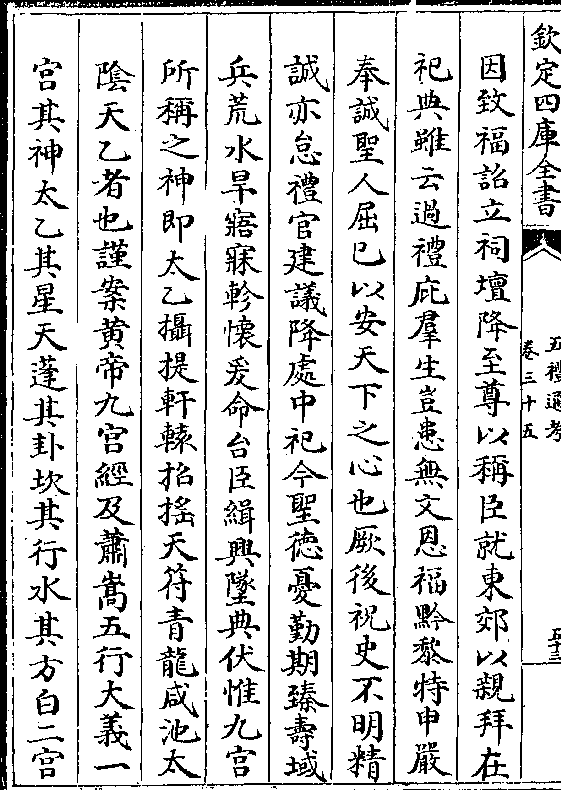 欽定四庫全書
五禮通考
卷三十五
五十三
因致福詔立祠壇降至尊以稱臣就東郊以親拜在
祀典雖云過禮庇羣生豈患無文恩福黔黎特申嚴
奉誠聖人屈已以安天下之心也厥後祝史不明精
誠亦怠禮官建議降處中祀今聖德憂勤期臻壽域
兵荒水旱寤寐軫懷爰命台臣緝興墜典伏惟九宮
所稱之神即太乙攝提軒轅招搖天符青龍咸池太
陰天乙者也謹案黄帝九宮經及蕭嵩五行大義一
宮其神太乙其星天蓬其卦坎其行水其方白二宮